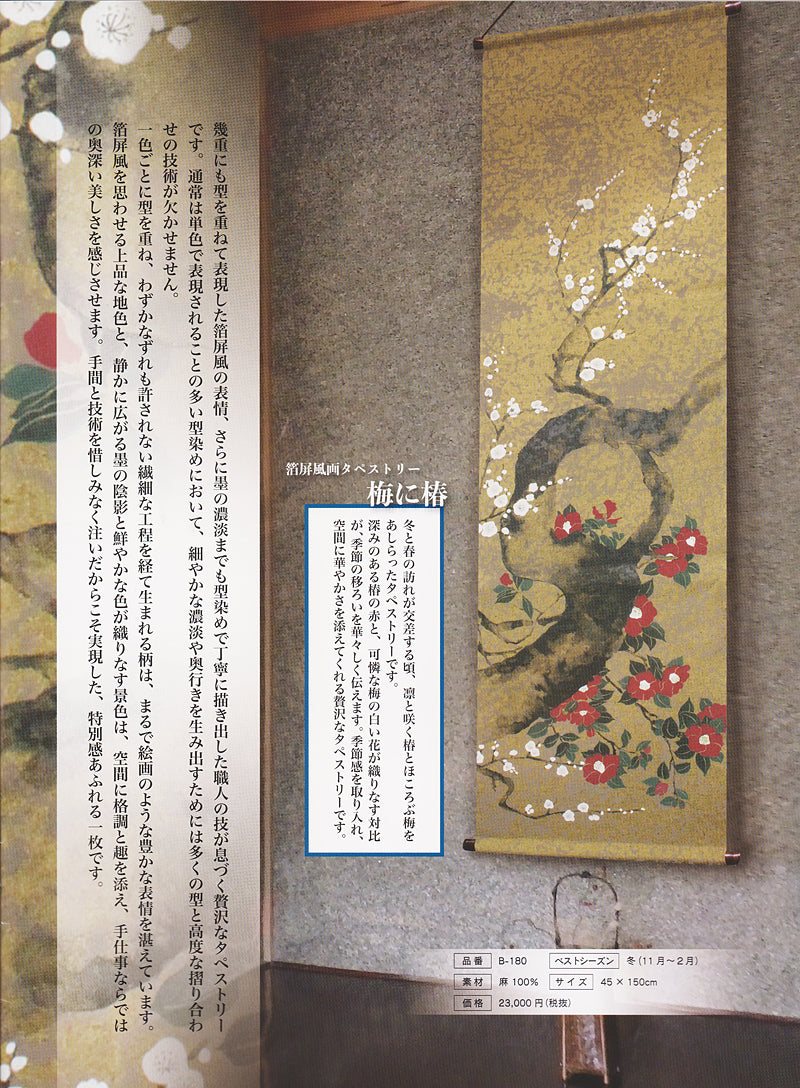 箔屏風画タペストリー
梅に椿
冬と春の訪れが交差する頃、凛と咲く椿とほころぶ梅を
あしらったタペストリーです。
深みのある椿の赤と、可憐な梅の白い花が織りなす対比
が、季節の移ろいを華々しく伝えます。季節感を取り入れ、
空間に華やかさを添えてくれる贅沢なタペストリーです。
幾重にも型を重ねて表現した箔屏風の表情、さらに墨の濃淡までも型染めで丁寧に描き出した職人の技が息づく贅沢なタペストリー
です。通常は単色で表現されることの多い型染めにおいて、細やかな濃淡や奥行きを生み出すためには多くの型と高度な摺り合わ
せの技術が欠かせません。
一色ごとに型を重ね、わずかなずれも許されない繊細な工程を経て生まれる柄は、まるで絵画のような豊かな表情を湛えています。
箔屏風を思わせる上品な地色と、静かに広がる墨の陰影と鮮やかな色が織りなす景色は、空間に格調と趣を添え、手仕事ならでは
の奥深い美しさを感じさせます。手間と技術を惜しみなく注いだからこそ実現した、特別感あふれる一枚です。
品番 B-180 ベストシーズン 冬(11月〜2月)
素材 麻100% サイズ 45×150cm
価格 23,000円(税抜)